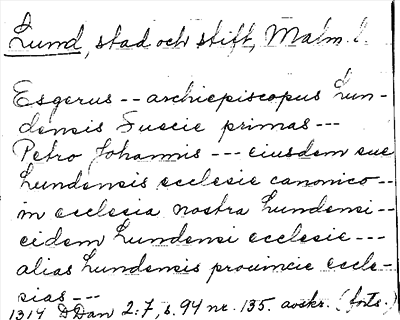 Lund, stad och stift, Malm. l.
Esgerus -- archiepiscopus Lun-
densis Suecie primas ---
Petro Johannis --- eiusdem sue
Lundensis ecclesie canonico --
in ecclesia nostra Lundensi --
eidem Lundensi ecclesie ---
alias Lundensis prouincie eccle-
sias ---
1314 DDan 2:7, s. 94 nr. 135. avskr. (forts.)